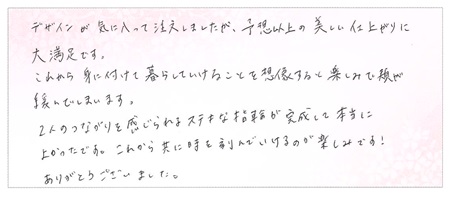 デザインが気に入って注文しましたが、予想以上の美しい仕上がりに
大満足です。
これから身に付けて暮らしていけることを想像すると楽しみで頬が
緩んでしまいます。
2人のつながりを感じられるステキな指輪が完成して本当に
よかったです。これから共に時を刻んでいけるのが楽しみです!
ありがとうございました。